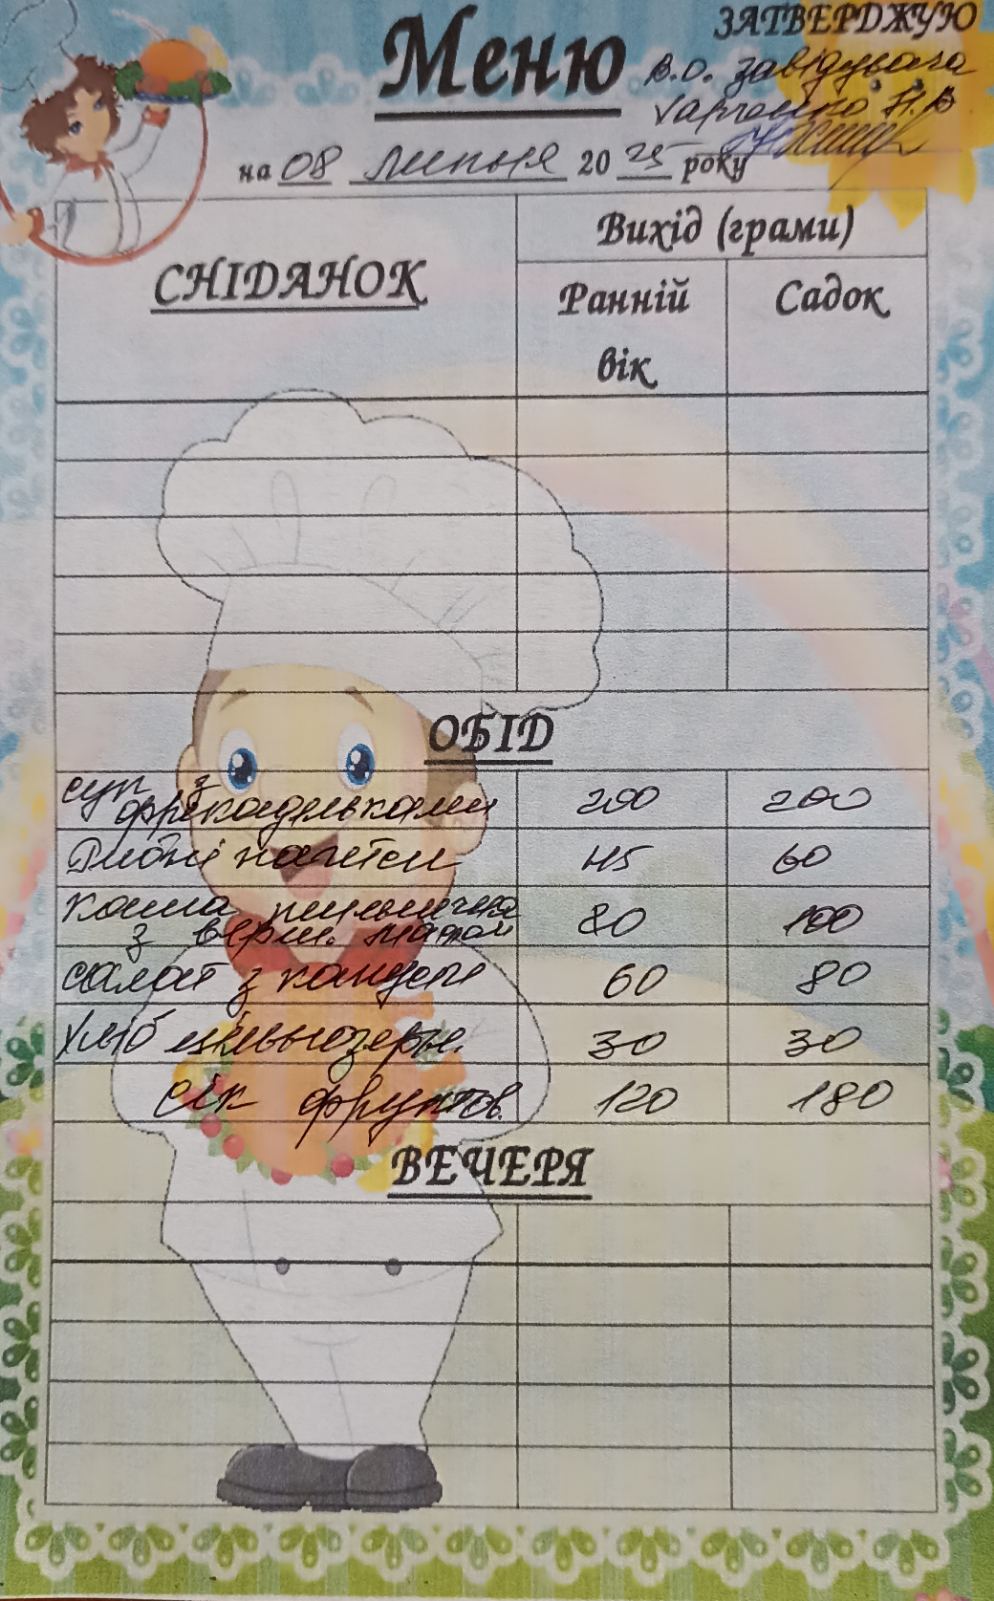 Меню
ЗАТВЕРДЖУЮ
В.О. завідувача
Н.В
на 08 липня 2025 року
СНІДАНОК
Вихід (грами)
Ранній вік
Садок
ОБІД
суп з фрікадельками 200 200
Рибні нагетси 45 60
каша пшенична з верш. маслом 80 100
салат з капусти 60 80
хліб цільнозерн. 30 30
сік фруктов. 120 180
ВЕЧЕРЯ